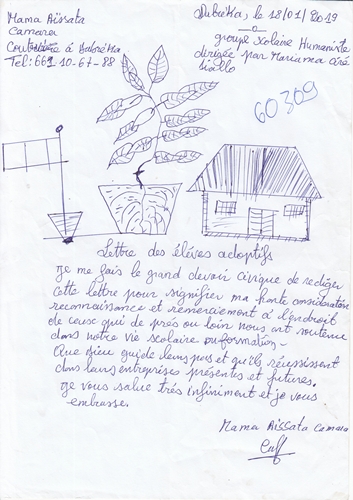 Mama Aïssata
Camara
Couturière à Dubréka
Tel: 661 10-67-88
Dubréka, le 18/01/2019
groupe Scolaire Humaniste
dirigée par Mariama ciré
Diallo
60309
Lettre des élèves adoptifs
Je me fais le grand devoir civique de rediger
cette lettre pour signifier ma haute considération
reconnaissance et remerciement à l'endroit
de ceux qui de près ou loin nous ont soutenu
dans notre vie scolaire ou formation-
Que dieu guide leurs pas et qu'ils réussissent
dans leurs entreprises présentes et futures.
Je vous salue très infiniment et je vous
embrasse.
Mama Aïssata Camara